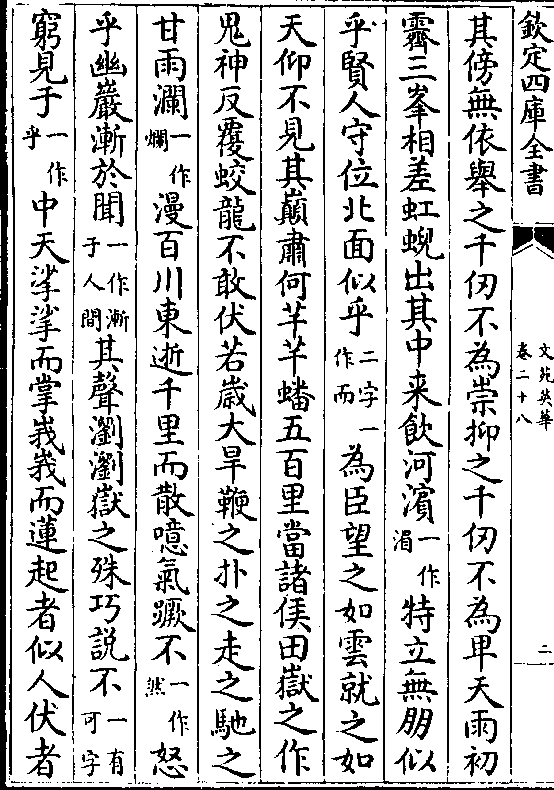 欽定四庫全書
文苑英華
卷二十八
二
其傍無依舉之千仞不為崇抑之千仞不為卑天雨初
霽三峯相差虹蜺出其中来飲河濱一作湄特立無朋似
乎賢人守位北面似乎二字一作而為臣望之如雲就之如
天仰不見其巔肅何芊芊蟠五百里當諸侯田嶽之作
鬼神反覆蛟龍不敢伏若歲大旱鞭之扑之走之馳之
甘雨瀾一作爛漫百川東逝千里而散噫氣蹶不一作然怒
乎幽巖漸於聞一作漸于人間其聲瀏瀏嶽之殊巧說不一有可字
窮見于一作乎中天挲挲而掌峩峩而蓮起者似人伏者